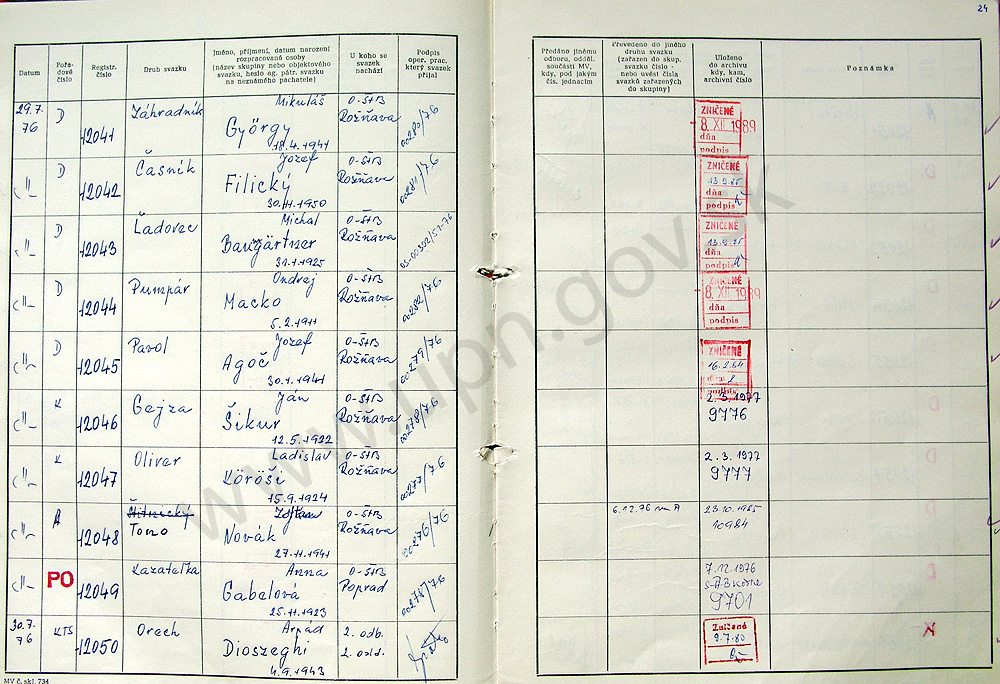 24
Datum
Pořadové číslo
Registr. číslo
Druh svazku
Jméno, příjmení, datum narození rozpracovaná osoby (název skupiny nebo objektového svazku, heslo ag. pátr. svazku na neznámého pachatele)
U koho se svazek nachází
Podpis oper. prac. který svazek přijal
Předáno jinému odboru, odděl. součásti MV, kdy, pod jakým čís. jednacím
Převedeno do jiného druhu svazku (zařazen do skup. svazku číslo - nebo uvést čísla svazků zařazených do skupiny)
Uloženo do archivu kdy, kam, archivní číslo
Poznámka
29.7. 76 D 12041 Záhradník Mikuláš György 18.4.1941 O-ŠtB Rožňava 00280/76
ZNIČENÉ 8. XII. 1989 dňa podpis
-"- D 12042 Časník Jozef Filický 30.11.1950 O-ŠtB Rožňava 00281/76
ZNIČENÉ dňa podpis
-"- D 12043 Ľadovec Michal Baugärtner 31.1.1925 O-ŠtB Rožňava
ZNIČENÉ dňa podpis
-"- D 12044 Pumpár Ondrej Macko 5.2.1911 O-ŠtB Rožňava 00282/76
ZNIČENÉ 8. XII. 1989 dňa podpis
-"- D 12045 Pavol Jozef Agoč 30.1.1941 O-ŠtB Rožňava 00279/76
ZNIČENÉ dňa podpis
-"- K 12046 Gejza Ján Šikur 12.5.1922 O-ŠtB Rožňava 00278/76 2.3.1977 9776
-"- K 12047 Oliver Ladislav Köröši 15.9.1924 O-ŠtB Rožňava 00277/76 2.3.1977 9777
-"- A 12048 Tomo Novák 27.11.1941 O-ŠtB Rožňava 00276/76 6.12.76 na A 23.10.1985 10984
-"- PO 12049 Kazateľka Anna Gabelová 25.11.1923 O-ŠtB Poprad 00278/76 7.12.1976 9701
30.7. 76 KTS 12050 Orech Arpád Dioszeghi 4.9.1943 2. odb. 2. odd.
Zničené 9.7.80
MV č. skl. 734
www.upn.gov.sk